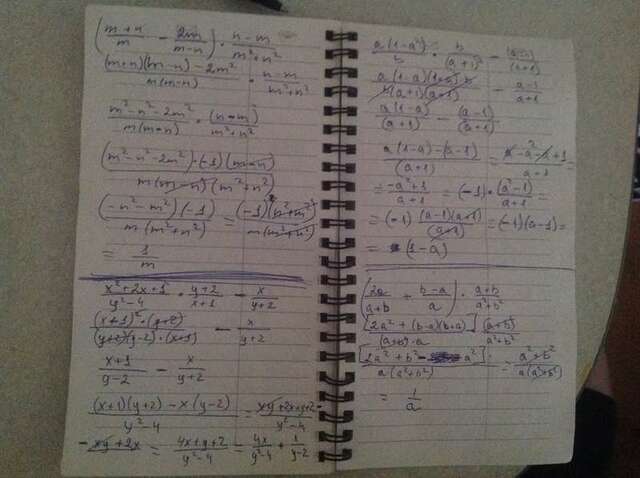 (m+n/m - 2m/m-n) · n-m/m²+n²
(m+n)(m-n)-2m²/m(m-n) · n-m/m²+n²
m²-n²-2m²/m(m-n) · (n-m)/m²+n²
(m²-n²-2m²)·(-1)(m-n)/m(m-n)(m²+n²)
(-n²-m²)(-1)/m(m²+n²) = (-1)²(n²+m²)/m(m²+n²)
= 1/m
x²+2x+1/y²-4 · y+2/x+1 - x/y+2
(x+1)²·(y+2)/(y+2)(y-2)·(x+1) - x/y+2
x+1/y-2 - x/y+2
(x+1)(y+2)-x(y-2)/y²-4 = xy+2x+y+2-/y²-4
-xy+2x = 4x+y+2/y²-4 = 4x/y²-4 + 1/y-2
a(1-a²)/b · b/(a+1)² - (a-1)/(a+1)
a(1-a)(1+a)b/b(a+1)(a+1) - a-1/a+1
a(1-a)/(a+1) - (a-1)/(a+1)
a(1-a)-(a-1)/(a+1) = a-a²-a+1/a+1 =
= -a²+1/a+1 = (-1)·(a²-1)/a+1 =
= (-1) (a-1)(a+1)/a+1 = (-1)(a-1) =
= (1-a)
(2a/a+b + b-a/a) · a+b/a²+b²
[2a²+(b-a)(b+a)]·(a+b)/(a+b)·a a²+b²
[2a²+b²-a²]/a(a²+b²) = a²+b²/a(a²+b²)
= 1/a